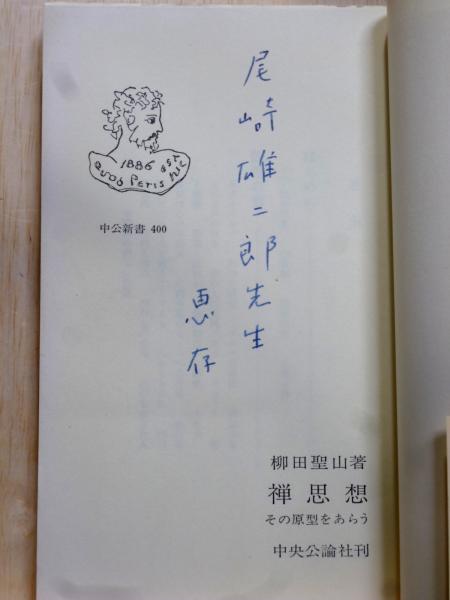 尾崎雄二郎先生
恵存
1886
QUOD PETIS HIC EST
中公新書 400
柳田聖山著
禅思想
その原型をあらう
中央公論社刊